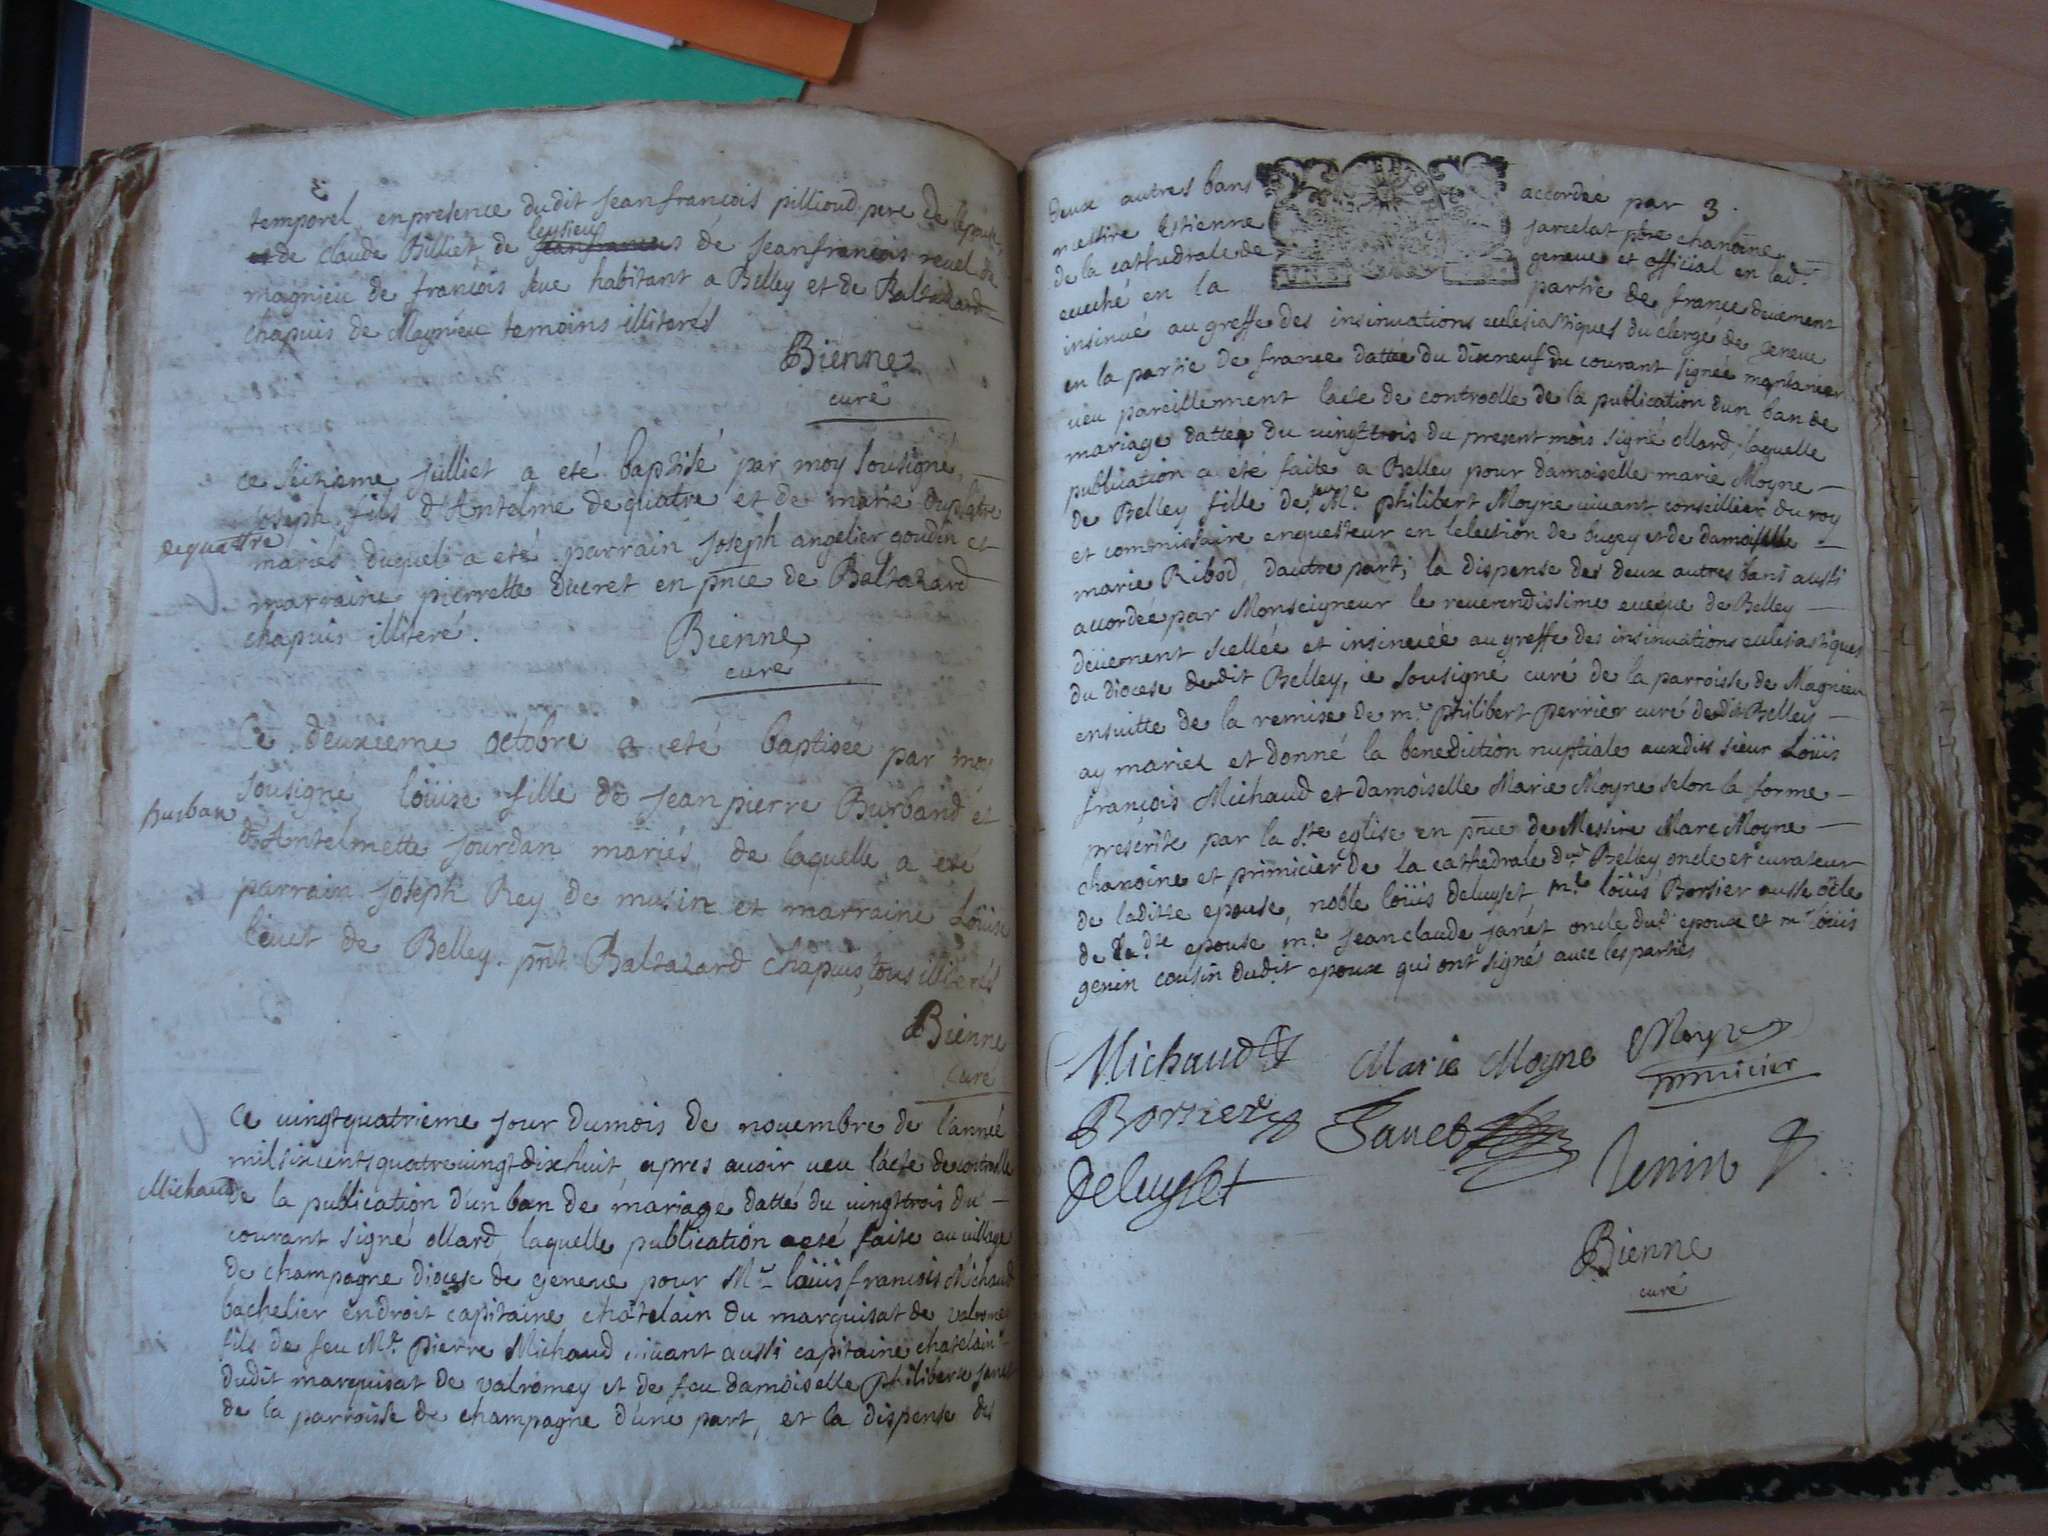 temporel en presence dudit Jean françois pillioud pere de lepouse,
et de claude Billiet, de leyrieu de Jean francois reuel de
magnieu de françois seue habitant a Belley et de Baltazard
chapuis de Magnieu temoins illiterés
Bienne
curé
ce seizieme Julliet a eté baptisé par moy sousigné
Joseph, fils d'Antelme dequatre et de marie duplatre
dequattre
mariés duquel a eté parrain Joseph angelier goudin et
marraine pierrette Ducret en pnce de Baltazard
chapuis illiteré.
Bienne
curé
Ce deuxieme octobre a eté baptisée par moy
sousigné loüise fille de Jean pierre Burband et
Burban
d'Antelmette Jourdan mariés, de laquelle a eté
parrain Joseph Rey de musin et marraine Loüise
de Belley. pnt Baltazard chapuis, tous illiterés
Bienne
curé
Ce vingtquatrieme jour du mois de novembre de l'année
mil sixcents quatre vingt dixhuit, apres avoir veu lacte de controlle
Michaud
de la publication d'un ban de mariage datté du vingttrois du
courant signé ollard, laquelle publication a eté faite au village
de champagne diocese de geneue pour Mr loüis francois Michaud
bachelier en droit capitaine châtelain du marquisat de valromey
fils de feu Mr pierre Michaud vivant aussi capitaine chatelain
dudit marquisat de valromey et de feu damoiselle philiberte Janet
de la parroisse de champagne d'une part, et la dispense des
deux autres bans accordée par 3.
messire Estienne Jarcelat ptre chanoine
de la cathedrale de geneue et official en lad.
eveché en la partie de france deuement
insinué au greffe des insinuations eclesiastiques du clergé de geneue
en la partie de france dattée du dixneuf du courant signée montanier
veu pareillement lacte de controolle de la publication d'un ban de
mariage dattée du vingttrois du present mois signé ollard, laquelle
publication a eté faite a Belley pour damoiselle marie Moyne
de Belley fille de feu Me philibert Moyne vivant conseillier du roy
et commissaire enquesteur en lelection de bugey et de damoiselle
marie Ribod, dautre part, la dispense des deux autres bans aussi
accordée par Monseigneur le reverendissime eveque de Belley
deüement scellée et insinuée au greffe des insinuations eclesiastiques
du diocese dudit Belley, ie sousigné curé de la parroisse de Magnieu
ensuitte de la remise de mr philibert perrier curé dudit Belley
ay mariés et donné la benediction nuptiale auxdits sieur Loüis
françois Michaud et damoiselle Marie Moyne selon la forme
prescrite par la ste eglise en pnce de Messire Marc Moyne
chanoine et primicier de la cathedrale dud Belley oncle et curateur
de laditte epouse, noble loüis deluyset, mre loüis Borsier aussi ocle
de ladte epouse mre Jean claude janet oncle dud epoux et mr loüis
genin cousin dudit epoux qui ont signés avec les parties
Michaud Marie Moyne Moyne
primicier
Borsier Janet
Deluyset Jenin
Bienne
curé